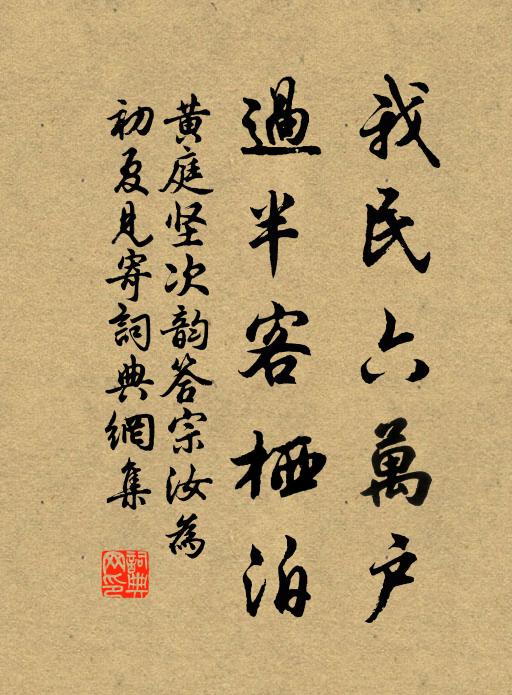 我民六萬户
過半客栖泊
黄庭坚次韵答宗汝為
初夏見寄詞典網集
詞典網印